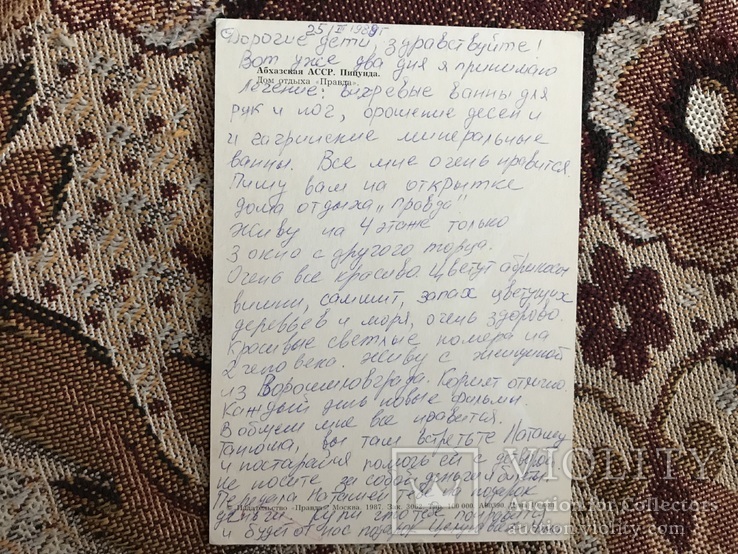 25/III 1989г
Дорогие дети, здравствуйте!
Вот уже два дня я принимаю
Абхазская АССР. Пицунда.
Дом отдыха «Правда».
лечение: вихревые ванны для
рук и ног, орошение десен и
и гагринские минеральные
ванны. Все мне очень нравится.
Пишу вам на открытке
дома отдыха „Правда"
Живу на 4 этаже только
3 окно с другого торца.
Очень все красива Цветут абрикосы
вишни, самшит, запах цветущих
деревьев и моря, очень здорово.
Красивые светлые номера на
2 человека. Живу с женщиной
из Ворошиловграда. Кормят отлично
Каждый день новые фильмы.
В общем мне все нравится.
Танюша, вы там встретьте Наташу
и постарайся помочь ей с
не носите за собой деньги и
Передала Наташей подарок
© Издательство «Правда». Москва. 1987. Зак.
деньги, купи
и будет от нас подарок
VIOLITY
Auction for Collectors
auction.violity.com